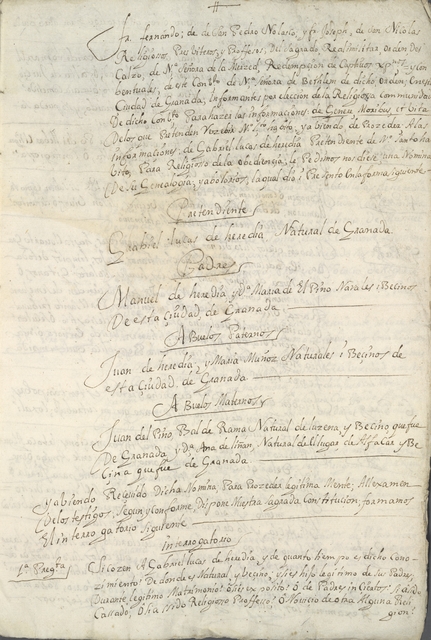 Fr. fernando, de San Pedro Nolasco, y fr. Joseph, de san Nicolas
Religiosos Presbiteros, y Professos, del sagrado, Real, militar, orden des
Calzo, de Nª Señora de la Merced, Redempcion de Captiuos
bentuales, de este Conto de Nª Señora de Bethlem de dicho, orden,
Ciudad de Granada, Informantes por eleccion de la Religiosa Communidad
De dicho Conto Para hazer las informaciones, de Genere Moribus, et Vita
Delos que Pretenden Vezevir Nº Sto habito, y abiendo, de Prozeder Alas
informaciones, de Gabriel lucas de heredia Pretendiente de Nº Santo ha
bito, Para Religioso de la obediencia, le Pedimos nos diese, una Nomina
De su Genealogia, y abolorios, la qual dio i Presento en la forma siguiente
Pretendiente
Gabriel lucas de heredia Natural de Granada
Padres
Manuel de heredia, y Dª Maria de El Pino Naturales i Becinos
De esta Ciudad, de Granada
Abuelos Paternos
Juan de heredia, y Maria Muñoz Naturales i Becinos de
esta Ciudad. de Granada
Abuelos Maternos
Juan del Pino Bal de Rama Natural de luzena, y Becino que fue
De Granada y Dª Ana de liñan, Natural de el lugar de Alfacar y Be
Cina que fue de Granada
Y abiendo Recivido Dicha Nomina Para Prozeder legitima Mente, Al examen
Delos testigos, Segun y conforme, Dispone Nuestra sagrada Constitucion, formamos
El interrogatorio siguiente
interrogatorio
1ª Pregta
Si conozen A Gabriel lucas de heredia y de quanto tiempo es dicho cono-
zimiento? De donde es Natural, y becino; si es hijo legitimo de sus Padres
Durante legitimo Matrimonio? O si es exposito? O de Padres inciertos?
Cassado, O ha sido Religioso Professo? O Novicio de otra Alguna Reli
gion?